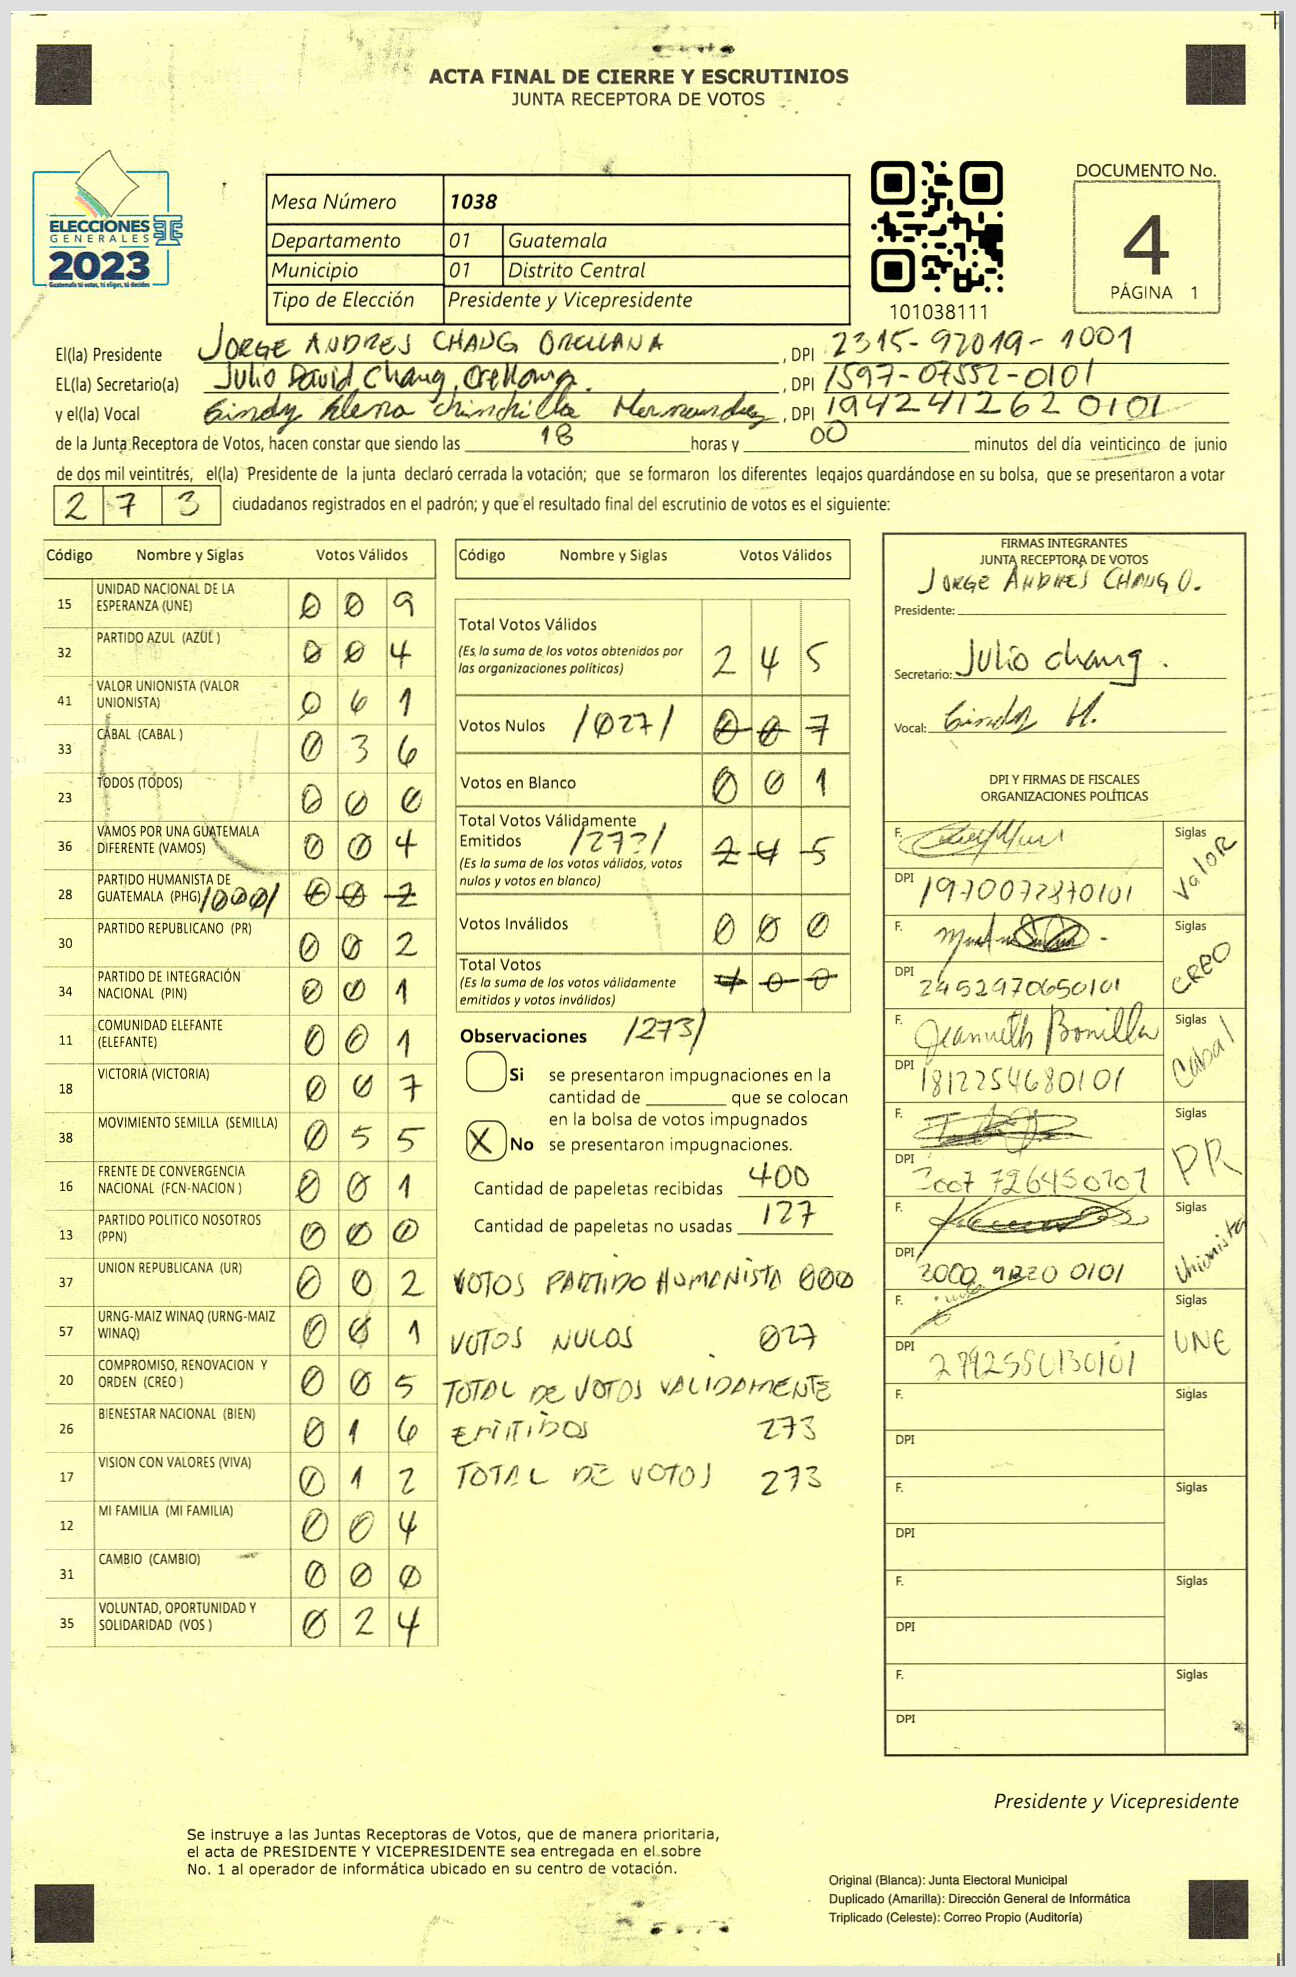 ACTA FINAL DE CIERRE Y ESCRUTINIOS
JUNTA RECEPTORA DE VOTOS
ELECCIONES
GENERALES
2023
Guatemala tú votas, tú eliges, tú decides
Mesa Número 1038
Departamento 01 Guatemala
Municipio 01 Distrito Central
Tipo de Elección Presidente y Vicepresidente
101038111
DOCUMENTO No.
4
PÁGINA 1
El(la) Presidente JORGE ANDRES CHANG ORELLANA , DPI 2315-97019-1001
EL(la) Secretario(a) Julio David Chang Orellana. , DPI 1597-07552-0101
y el(la) Vocal Cindy Elena Chinchilla Hernandez , DPI 1942412620101
de la Junta Receptora de Votos, hacen constar que siendo las 18 horas y 00 minutos del día veinticinco de junio
de dos mil veintitrés, el(la) Presidente de la junta declaró cerrada la votación; que se formaron los diferentes legajos guardándose en su bolsa, que se presentaron a votar
2 7 3 ciudadanos registrados en el padrón; y que el resultado final del escrutinio de votos es el siguiente:
Código Nombre y Siglas Votos Válidos
15 UNIDAD NACIONAL DE LA
ESPERANZA (UNE) 0 0 9
32 PARTIDO AZUL (AZUL ) 0 0 4
41 VALOR UNIONISTA (VALOR
UNIONISTA) 0 6 1
33 CABAL (CABAL ) 0 3 6
23 TODOS (TODOS) 0 0 0
36 VAMOS POR UNA GUATEMALA
DIFERENTE (VAMOS) 0 0 4
28 PARTIDO HUMANISTA DE
GUATEMALA (PHG) /000/ 0 0 2
30 PARTIDO REPUBLICANO (PR) 0 0 2
34 PARTIDO DE INTEGRACIÓN
NACIONAL (PIN) 0 0 1
11 COMUNIDAD ELEFANTE
(ELEFANTE) 0 0 1
18 VICTORIA (VICTORIA) 0 0 7
38 MOVIMIENTO SEMILLA (SEMILLA) 0 5 5
16 FRENTE DE CONVERGENCIA
NACIONAL (FCN-NACION ) 0 0 1
13 PARTIDO POLITICO NOSOTROS
(PPN) 0 0 0
37 UNION REPUBLICANA (UR) 0 0 2
57 URNG-MAIZ WINAQ (URNG-MAIZ
WINAQ) 0 0 1
20 COMPROMISO, RENOVACION Y
ORDEN (CREO ) 0 0 5
26 BIENESTAR NACIONAL (BIEN) 0 1 6
17 VISION CON VALORES (VIVA) 0 1 2
12 MI FAMILIA (MI FAMILIA) 0 0 4
31 CAMBIO (CAMBIO) 0 0 0
35 VOLUNTAD, OPORTUNIDAD Y
SOLIDARIDAD (VOS ) 0 2 4
Código Nombre y Siglas Votos Válidos
Total Votos Válidos
(Es la suma de los votos obtenidos por
las organizaciones políticas) 2 4 5
Votos Nulos /027/ 0 0 7
Votos en Blanco 0 0 1
Total Votos Válidamente
Emitidos /273/ 2 4 5
(Es la suma de los votos válidos, votos
nulos y votos en blanco)
Votos Inválidos 0 0 0
Total Votos
(Es la suma de los votos válidamente
emitidos y votos inválidos) 4 0 0
Observaciones /273/
Si se presentaron impugnaciones en la
cantidad de ________ que se colocan
en la bolsa de votos impugnados
X No se presentaron impugnaciones.
Cantidad de papeletas recibidas 400
Cantidad de papeletas no usadas 127
VOTOS PARTIDO HUMANISTA 000
VOTOS NULOS 027
TOTAL DE VOTOS VALIDAMENTE
EMITIDOS 273
TOTAL DE VOTOS 273
FIRMAS INTEGRANTES
JUNTA RECEPTORA DE VOTOS
JORGE ANDRÉS CHANG O.
Presidente:
Secretario: Julio Chang.
Vocal: Cindy H.
DPI Y FIRMAS DE FISCALES
ORGANIZACIONES POLÍTICAS
F. Siglas Valor
DPI 1970072870101
F. Siglas CREO
DPI 2452970650101
F. Jeanneth Bonilla Siglas Cabal
DPI 1812254680101
F. Siglas PR
DPI
F. Siglas Unionista
DPI
F. Siglas UNE
DPI 2792550130101
F. Siglas
DPI
F. Siglas
DPI
F. Siglas
DPI
F. Siglas
DPI
Presidente y Vicepresidente
Se instruye a las Juntas Receptoras de Votos, que de manera prioritaria,
el acta de PRESIDENTE Y VICEPRESIDENTE sea entregada en el sobre
No. 1 al operador de informática ubicado en su centro de votación.
Original (Blanca): Junta Electoral Municipal
Duplicado (Amarilla): Dirección General de Informática
Triplicado (Celeste): Correo Propio (Auditoría)